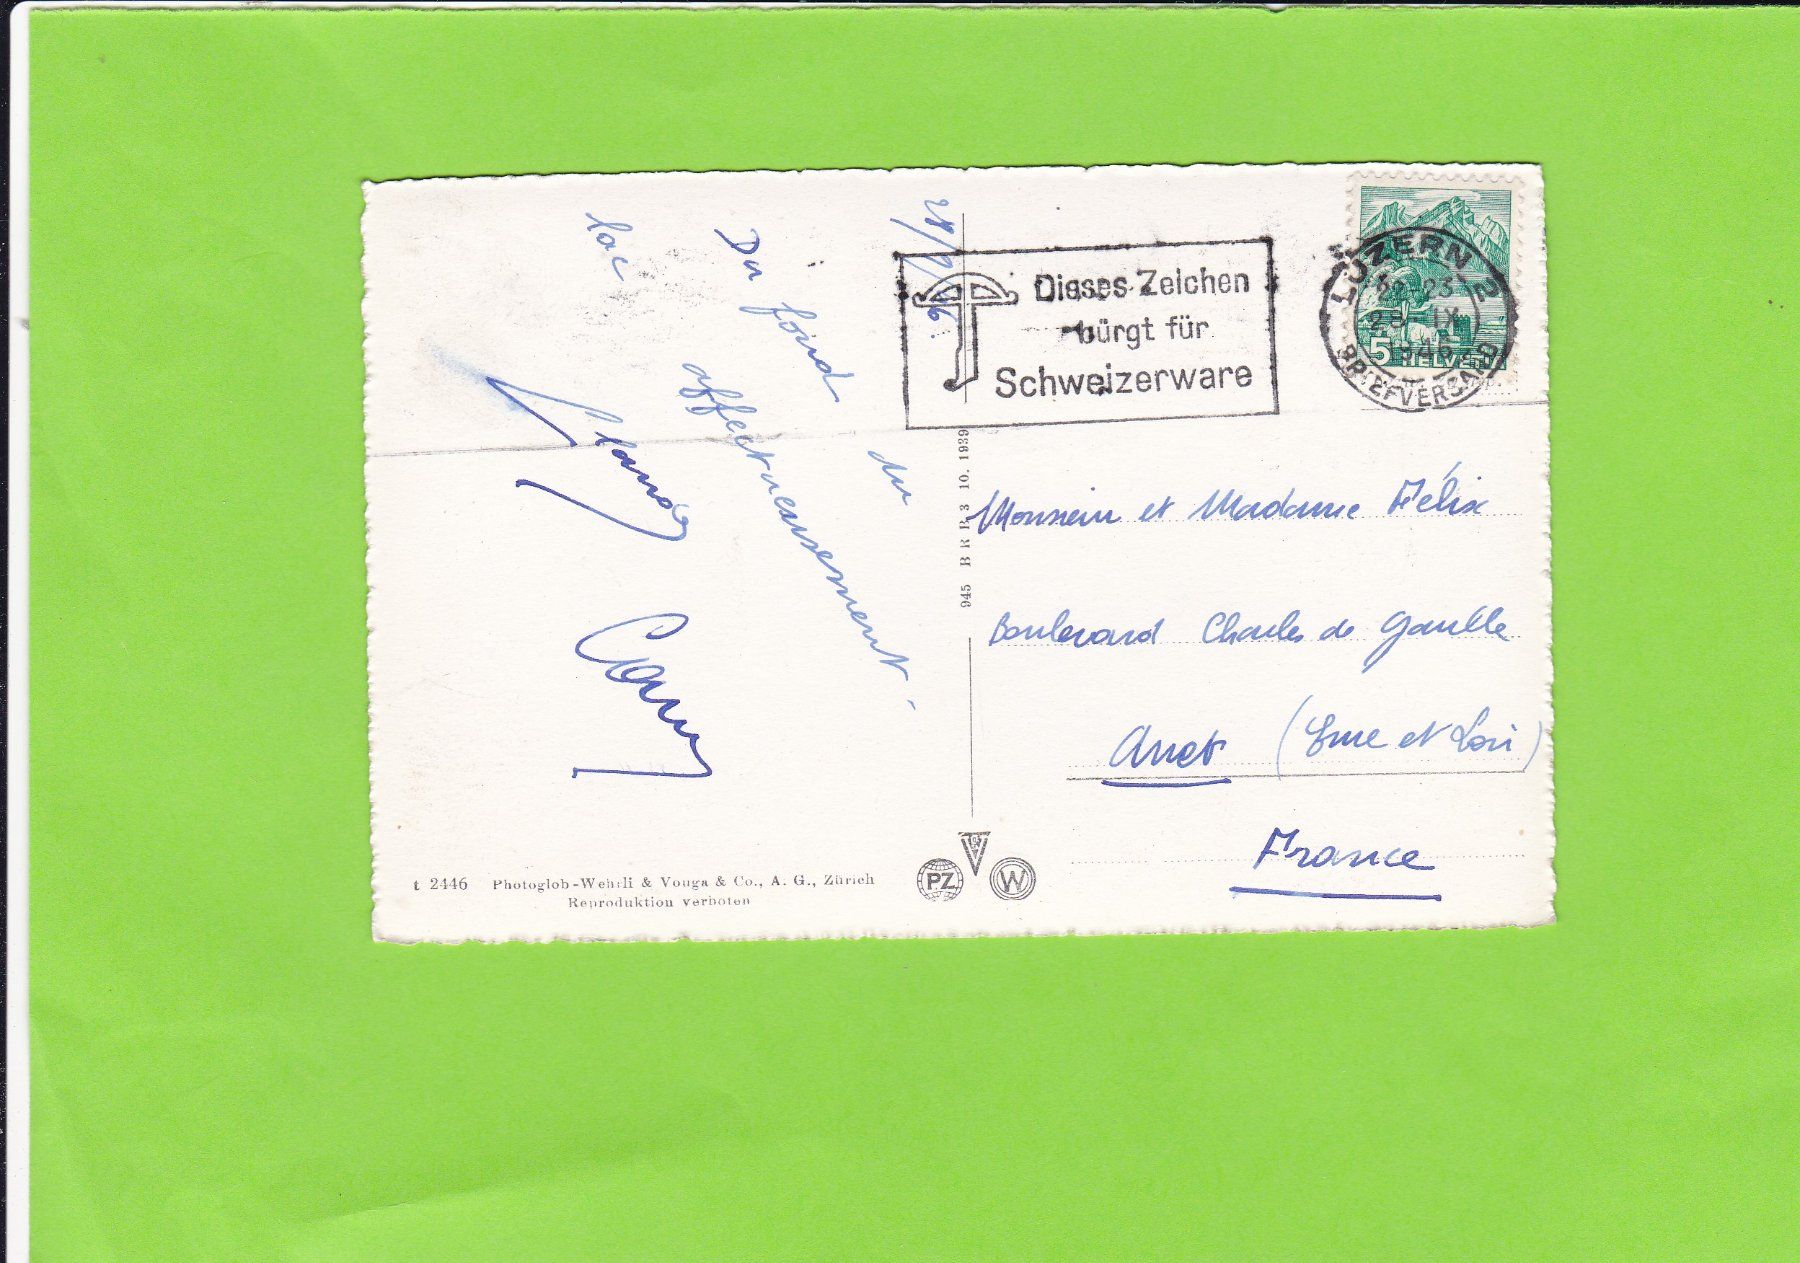 28/9/46.
Du fond du
lac
affectueusement.
Dieses Zeichen
bürgt für
Schweizerware
LUZERN 2
28-IX
1946
BRIEFVERSAND
5 HELVETIA
945 B R B 3 10. 1939
Monsieur et Madame Félix
Boulevard Charles de Gaulle
Anet (Eure et Loir)
France
t 2446 Photoglob-Wehrli & Vouga & Co., A. G., Zürich
Reproduktion verboten
PZ
W